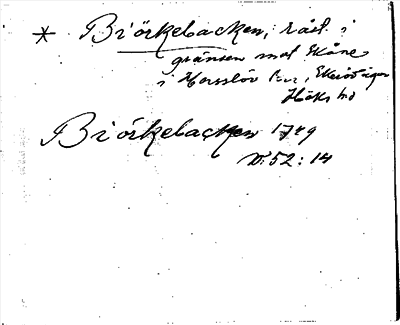 * Biörkebacken, råst i
gränsen mot Skåne
i Hasslöv sn,
Höks hd
Biörkebacken 1749
N:52:14